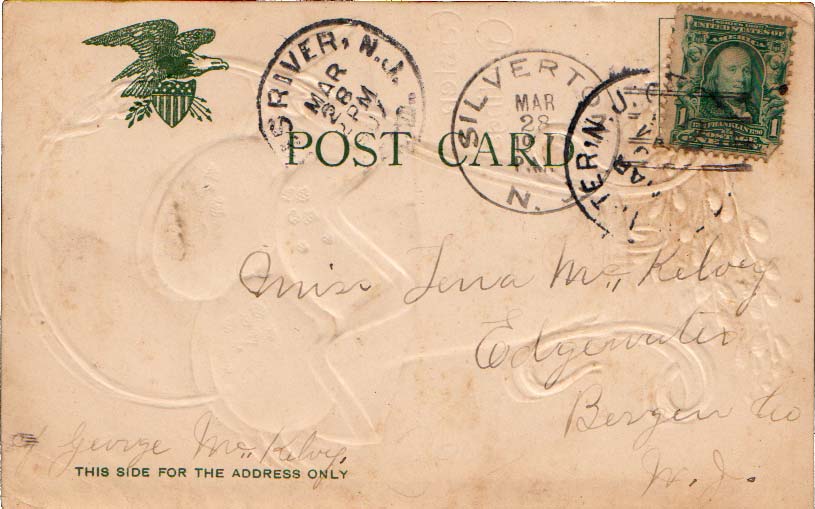 SRIVER, N.J.
MAR
28
PM
SILVERTO
MAR
28
N. J.
TER, N.J.
SERIES 1902
UNITED STATES OF AMERICA
1 FRANKLIN 1790 1
POST CARD
Miss Lena Mc Kelvey
Edgewater
Bergen Co
N. J.
of George Mc Kelvey.
THIS SIDE FOR THE ADDRESS ONLY